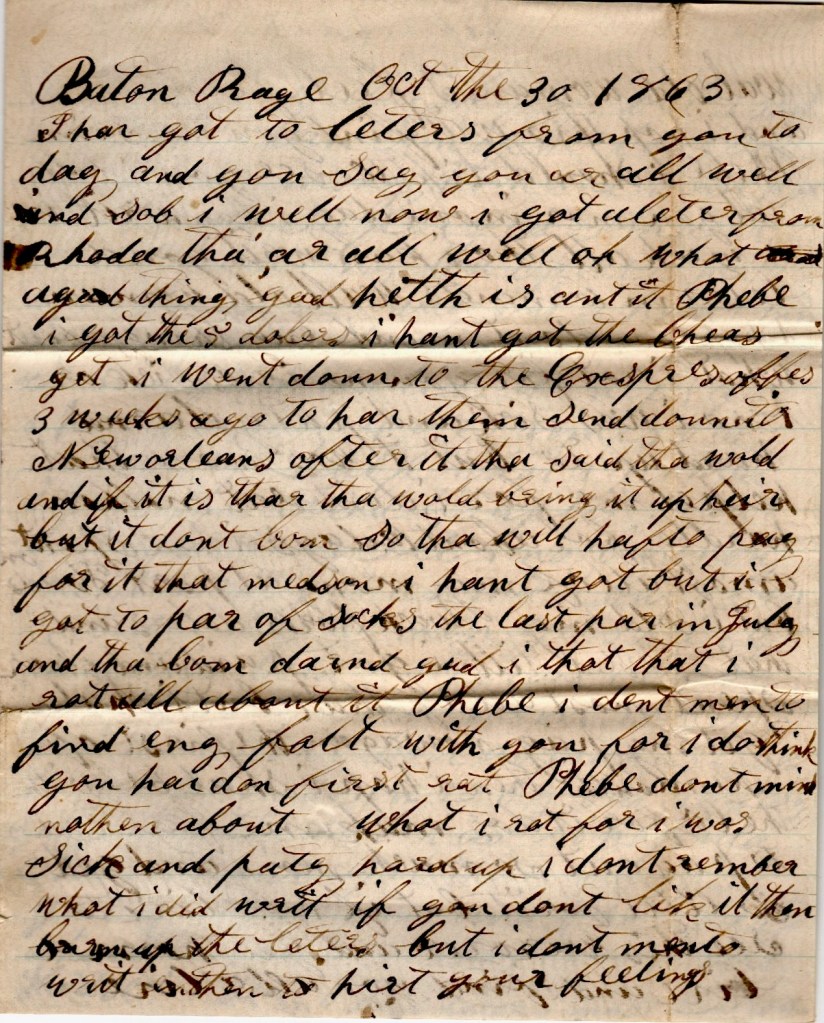 Baton Rage Oct the 30 1863
I har got to leters from you to
day and you say you ar all well
and sob i well now i got aleter from
Rhoda tha ar all well oh what
agud thing gud helth is ant it Phebe
i got the 5 dolers i hant got the Cheas
yet i went down to the Exspres offes
3 weeks ago to har them send down to
Neworleans after it tha said tha wold
and if it is thar tha wold bring it up heir
but it dont com so tha will hafto pay
for it that medson i hant got but i
got to par of socks the last par in July
and tha com darnd gud i that that i
rot all about it Phebe i dont men to
find eny folt with you for i do think
you har don first rat Phebe dont mind
nothen about what i rot for i was
Sick and puty hard up i dont rember
what i did writ if you dont lik it then
burn up the leters but i dont men to
writ enthen to hirt your feelings